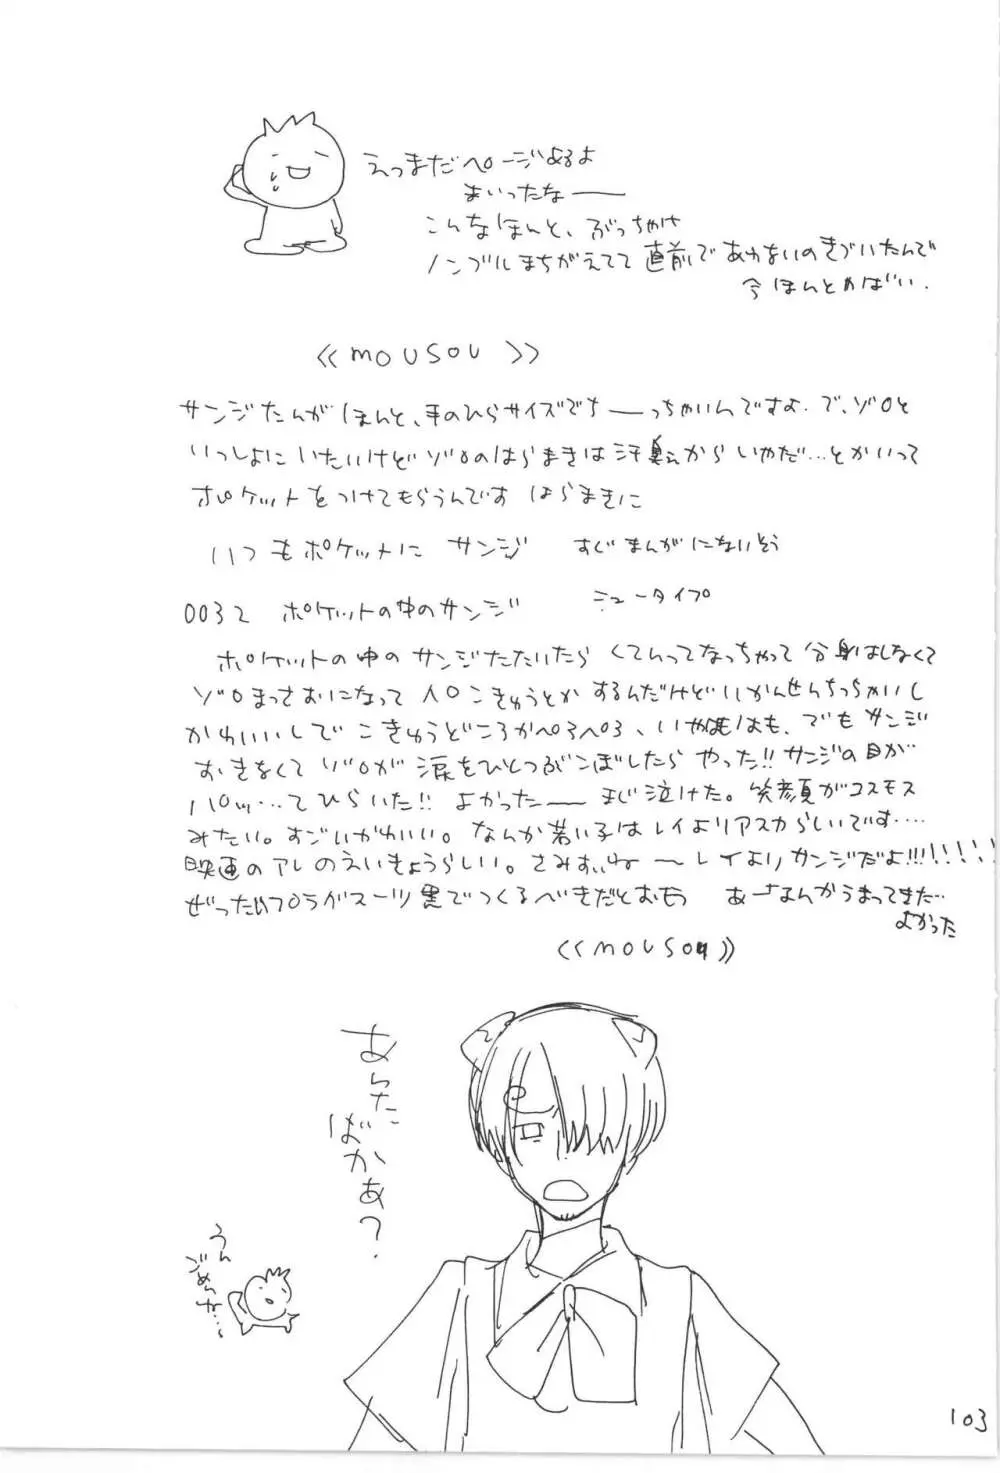 えっまだページあるよ
まいったなー
こんなほんと、ぶっちゃけ
ノンブルまちがえてて直前であわないのきづいたんで
今ほんとやばい.
《MOUSOU》
サンジたんがほんと、手のひらサイズでちーっちゃいんですよ.で、ゾロと
いっしょにいたいけどゾロのはらまきは汗臭えからいやだ…とかいって
ポケットをつけてもらうんですはらまきに
いつもポケットにサンジ すぐまんがになりそう
0032 ポケットの中のサンジ ニュータイプ
ポケットの中のサンジたたいたらくてんってなっちゃって分身はしなくて
ゾロまっさおになって人口こきゅうとかするんだけどいかんせんちっちゃいし
かわいいしでこきゅうどころかペろペろ、いやはもはも、でもサンジ
おきなくてゾロが涙をひとつぶこぼしたらやった!!サンジの目が
パッ…てひらいた!!よかったーまじ泣けた。笑顔がコスモス
みたい。すごいかわいい。なんか若い子はレイよりアスカらしいです….
映画のアレのえいきょうらしい。さみすぃねーレイよりサンジだよ!!!!!!!!
ぜったいプラグスーツ黒でつくるべきだとおもう あーなんかうまってきた…
よかった
《MOUSOU》
あんた
ばかぁ?
うん
ごめんな…
103